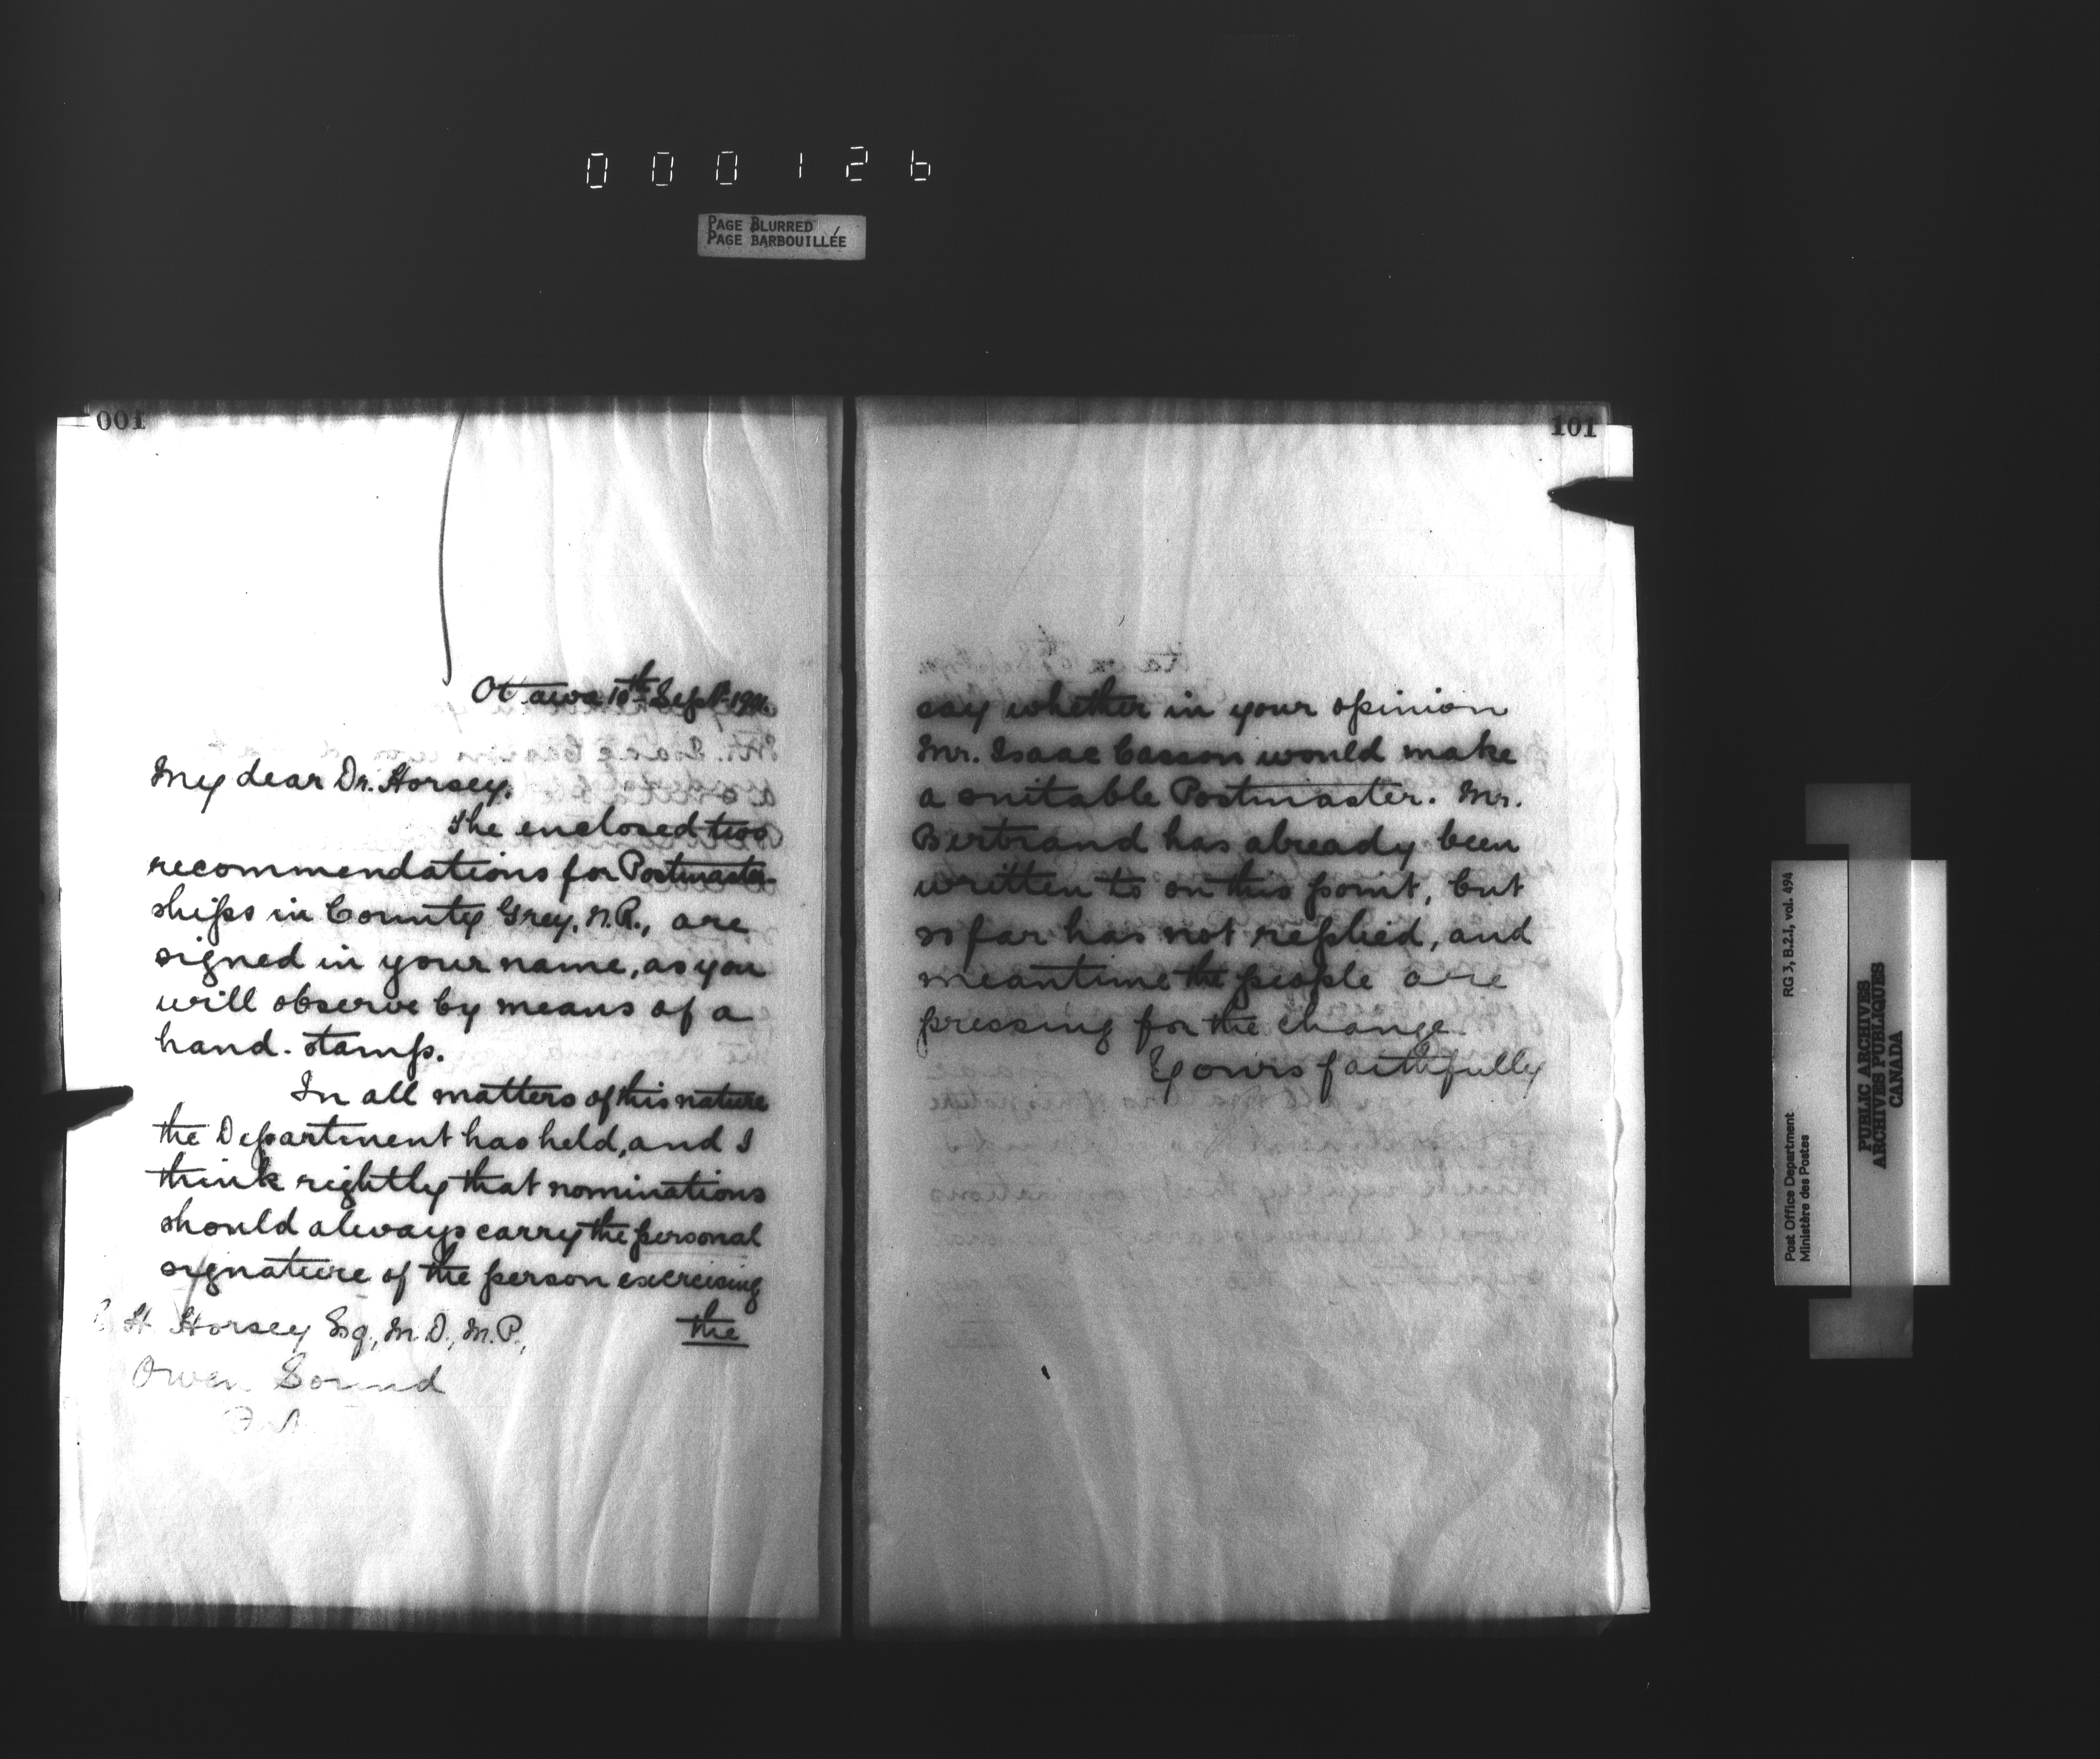 000126
PAGE BLURRED
PAGE BARBOUILLÉE
001
Ottawa 10th Sept. 190
My dear Dr. Horsey,
The enclosed two
recommendations for Postmaster-
ships in County Grey, N.R., are
signed in your name, as you
will observe by means of a
hand-stamp.
In all matters of this nature
the Department has held, and I
think rightly that nominations
should always carry the personal
signature of the person exercising
the
H. Horsey Esq., M.D., M.P.,
Owen Sound
Ont
101
say whether in your opinion
Mr. Isaac Casson would make
a suitable Postmaster. Mr.
Bertrand has already been
written to on this point, but
so far has not replied, and
meantime the people are
pressing for the change.
Yours faithfully
RG 3, B.2.I, vol. 494
Post Office Department
Ministère des Postes
PUBLIC ARCHIVES
ARCHIVES PUBLIQUES
CANADA